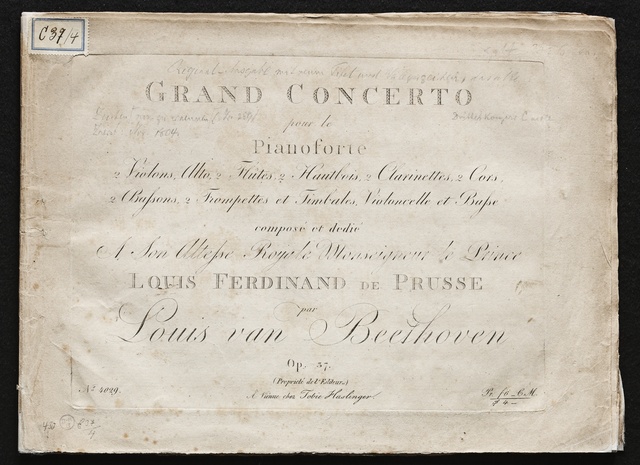 C 37/4
GRAND CONCERTO
pour le
Pianoforte
2 Violons, Alto, 2 Flûtes, 2 Hautbois, 2 Clarinettes, 2 Cors,
2 Bassons, 2 Trompettes et Timbales, Violoncelle et Basse
composé et dedié
A Son Altesse Royale Monseigneur le Prince
LOUIS FERDINAND DE PRUSSE
par
Louis van Beethoven
Op. 37.
(Propriété de l'Editeur.)
A Vienne chez Tobie Haslinger.
No. 4029.